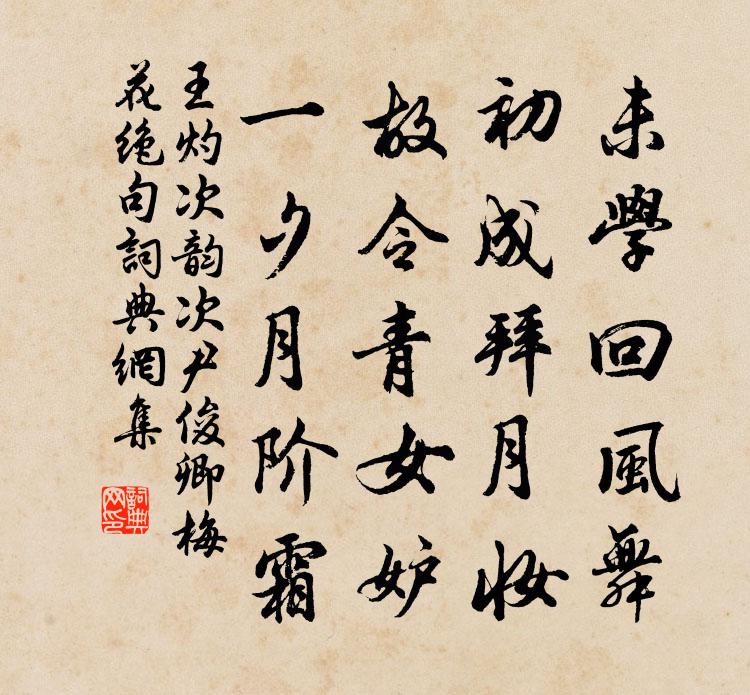 未學回風舞
初成拜月妝
故令青女妒
一夕月阶霜
王灼次韵次尹俊卿梅
花绝句詞典網集
詞典
网印